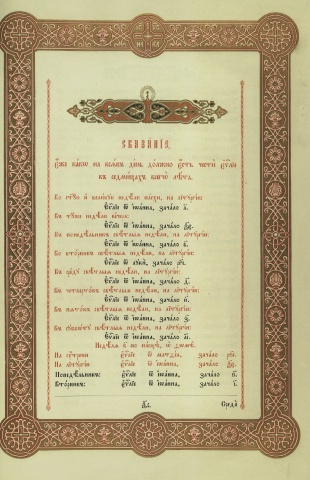 Сказанїе,
є҆́же ка́кѡ на всѧ́къ де́нь до́лжно є҆́сть честѝ є҆ѵⷢ҇лїе
въ седми́цахъ всегѡ̀ лѣ́та.
Во ст҃ꙋ́ю и҆ вели́кꙋю недѣ́лю па́схи, на лїтꙋргі́и:
Є҆ѵⷢ҇лїе ѿ і҆ѡа́нна, зача́ло а҃.
Въ тꙋ́юже недѣ́лю ве́чера:
Є҆ѵⷢ҇лїе ѿ і҆ѡа́нна, зача́ло
Въ понедѣ́льникъ свѣ́тлыѧ недѣ́ли, на лїтꙋргі́и:
Є҆ѵⷢ҇лїе ѿ і҆ѡа́нна, зача́ло в҃.
Во вто́рникъ свѣ́тлыѧ недѣ́ли, на лїтꙋргі́и:
Є҆ѵⷢ҇лїе ѿ лꙋкѝ, зача́ло
Въ сре́дꙋ свѣ́тлыѧ недѣ́ли, на лїтꙋргі́и:
Є҆ѵⷢ҇лїе ѿ і҆ѡа́нна, зача́ло д҃.
Въ четверто́къ свѣ́тлыѧ недѣ́ли, на лїтꙋргі́и:
Є҆ѵⷢ҇лїе ѿ і҆ѡа́нна, зача́ло и҃.
Въ пѧто́къ свѣ́тлыѧ недѣ́ли, на лїтꙋргі́и:
Є҆ѵⷢ҇лїе ѿ і҆ѡа́нна, зача́ло з҃.
Въ сꙋббѡ́тꙋ свѣ́тлыѧ недѣ́ли, на лїтꙋргі́и:
Є҆ѵⷢ҇лїе ѿ і҆ѡа́нна, зача́ло а҃і.
Недѣ́лѧ в҃ по па́сцѣ, ѡ҆ ѳѡмѣ̀.
На оу҆́трени є҆ѵⷢ҇лїе ѿ матѳе́а, зача́ло рѕ҃і.
На лїтꙋргі́и є҆ѵⷢ҇лїе ѿ і҆ѡа́нна, зача́ло
Понедѣ́льникъ: є҆ѵⷢ҇лїе ѿ і҆ѡа́нна, зача́ло в҃.
Вто́рникъ: є҆ѵⷢ҇лїе ѿ і҆ѡа́нна, зача́ло і҃.
Среда̀